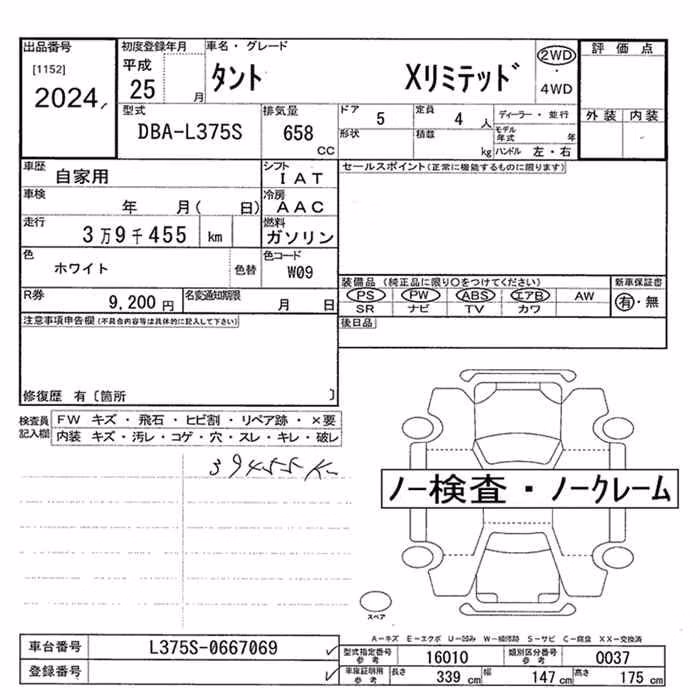 出品番号
[1152]
2024
初度登録年月
平成
25 月
車名・グレード
タント Xリミテッド
2WD
・
4WD
評価点
外装 内装
型式
DBA-L375S
排気量
658
CC
ドア 5
定員 4 人
ディーラー・並行
形状
積載 kg
モデル年式 年
ハンドル 左・右
車歴
自家用
シフト
IAT
セールスポイント(正常に機能するものに限ります)
車検
年 月( 日)
冷房
AAC
走行
3万9千455 km
燃料
ガソリン
色
ホワイト
色替
色コード
W09
装備品 (純正品に限り○をつけてください)
新車保証書
PS PW ABS エアB AW
SR ナビ TV カワ
有・無
R券
9,200 円
名変通知期限
月 日
後日品
注意事項申告欄(不具合内容等は具体的に記入して下さい)
修復歴 有〔箇所 〕
検査員
記入欄
FW キズ・飛石・ヒビ割・リペア跡・×要
内装 キズ・汚レ・コゲ・穴・スレ・キレ・破レ
39455K
ノー検査・ノークレーム
スペア
A-キズ E-エクボ U-凹み W-補修跡 S-サビ C-腐食 XX-交換済
車台番号
L375S-0667069
登録番号
型式指定番号
参考
16010
類別区分番号
参考
0037
車庫証明用
参考
長さ 339 cm
幅 147 cm
高さ 175 cm